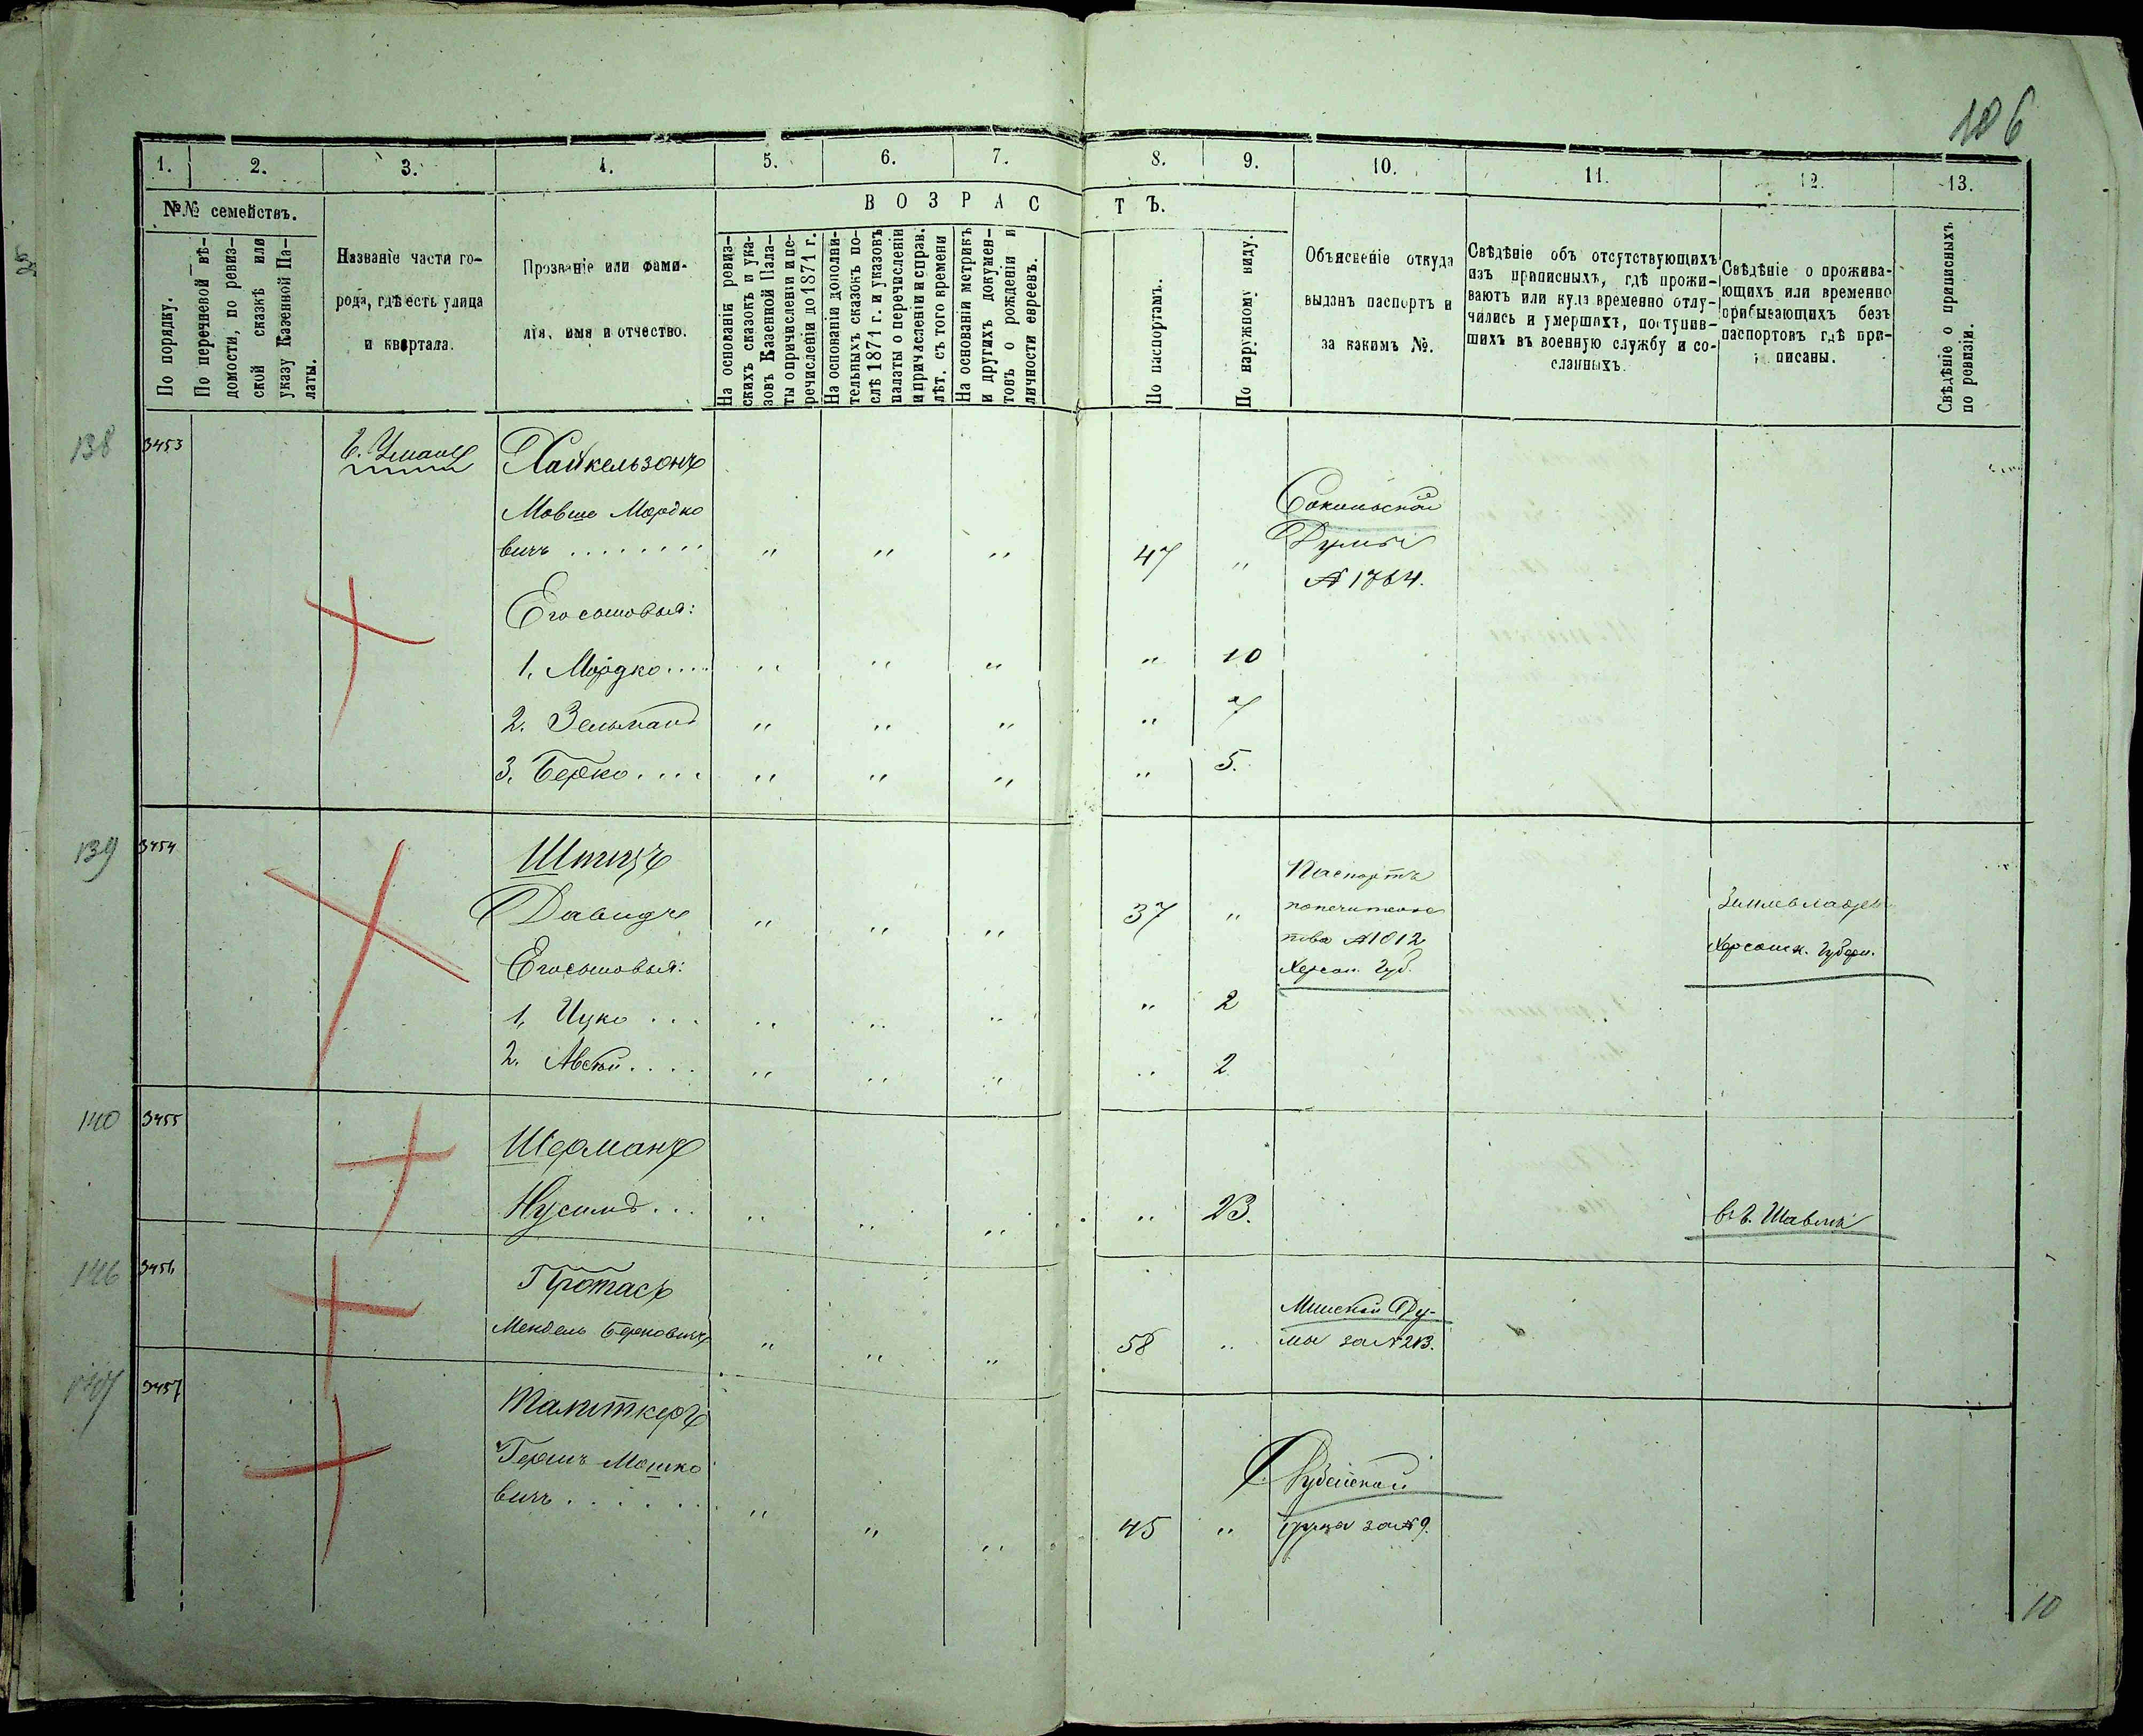 186
1. 2. 3. 4. 5. 6. 7. 8. 9. 10. 11. 12. 13.
№№ семействъ.
В О З Р А С Т Ъ.
По порядку.
По перечневой вѣ-
домости, по ревиз-
ской сказкѣ или
указу Казенной Па-
латы.
Названіе части го-
рода, гдѣ есть улица
и квартала.
Прозваніе или фами-
лія, имя и отчество.
На основаніи ревиз-
скихъ сказокъ и ука-
зовъ Казенной Пала-
ты о причисленіи и пе-
речисленіи до 1871 г.
На основаніи дополни-
тельныхъ сказокъ по-
слѣ 1871 г. и указовъ
палаты о перечисленіи
и причисленіи и справ.
лѣт. съ того времени
На основаніи метрикъ
и другихъ докумен-
товъ о рожденіи и
личности евреевъ.
По паспортамъ.
По наружному виду.
Объясненіе откуда
выданъ паспортъ и
за какимъ №.
Свѣдѣніе объ отсутствующихъ
изъ приписныхъ, гдѣ прожи-
ваютъ или куда временно отлу-
чились и умершихъ, поступив-
шихъ въ военную службу и со-
сланныхъ.
Свѣдѣніе о прожива-
ющихъ или временно
прибывающихъ безъ
паспортовъ гдѣ при-
писаны.
Свѣдѣніе о приписныхъ
по ревизіи.
138 3453 Г. Умань Хайкельзонъ
Мовша Мордко
вичъ . . . . . . . . " " " 47 "
Сокольской
Думы
№ 1764.
Его сыновья:
1. Мордко.... " " " " 10
2. Зельманъ " " " " 7
3. Берко.... " " " " 5.
139 3454 Штицъ
Давидъ " " " 37 "
Паспортъ
попечительс
тва №1012
Херсон. Губ.
Землевладѣл
Херсонск. Губерн.
Его сыновья:
1, Ицко . . . " " " " 2
2. Авсѣй.... " " " " 2
140 3455 Шерманъ
Нусимъ... " " " " 23. въ г. Шавли
146 3456 Протасъ
Мендель Берковичъ " " " 58 "
Минской Ду-
мы за №213.
147 3457
Гершъ Мошко
вичъ . . . . . . . " " " 45 "
за №9.
10